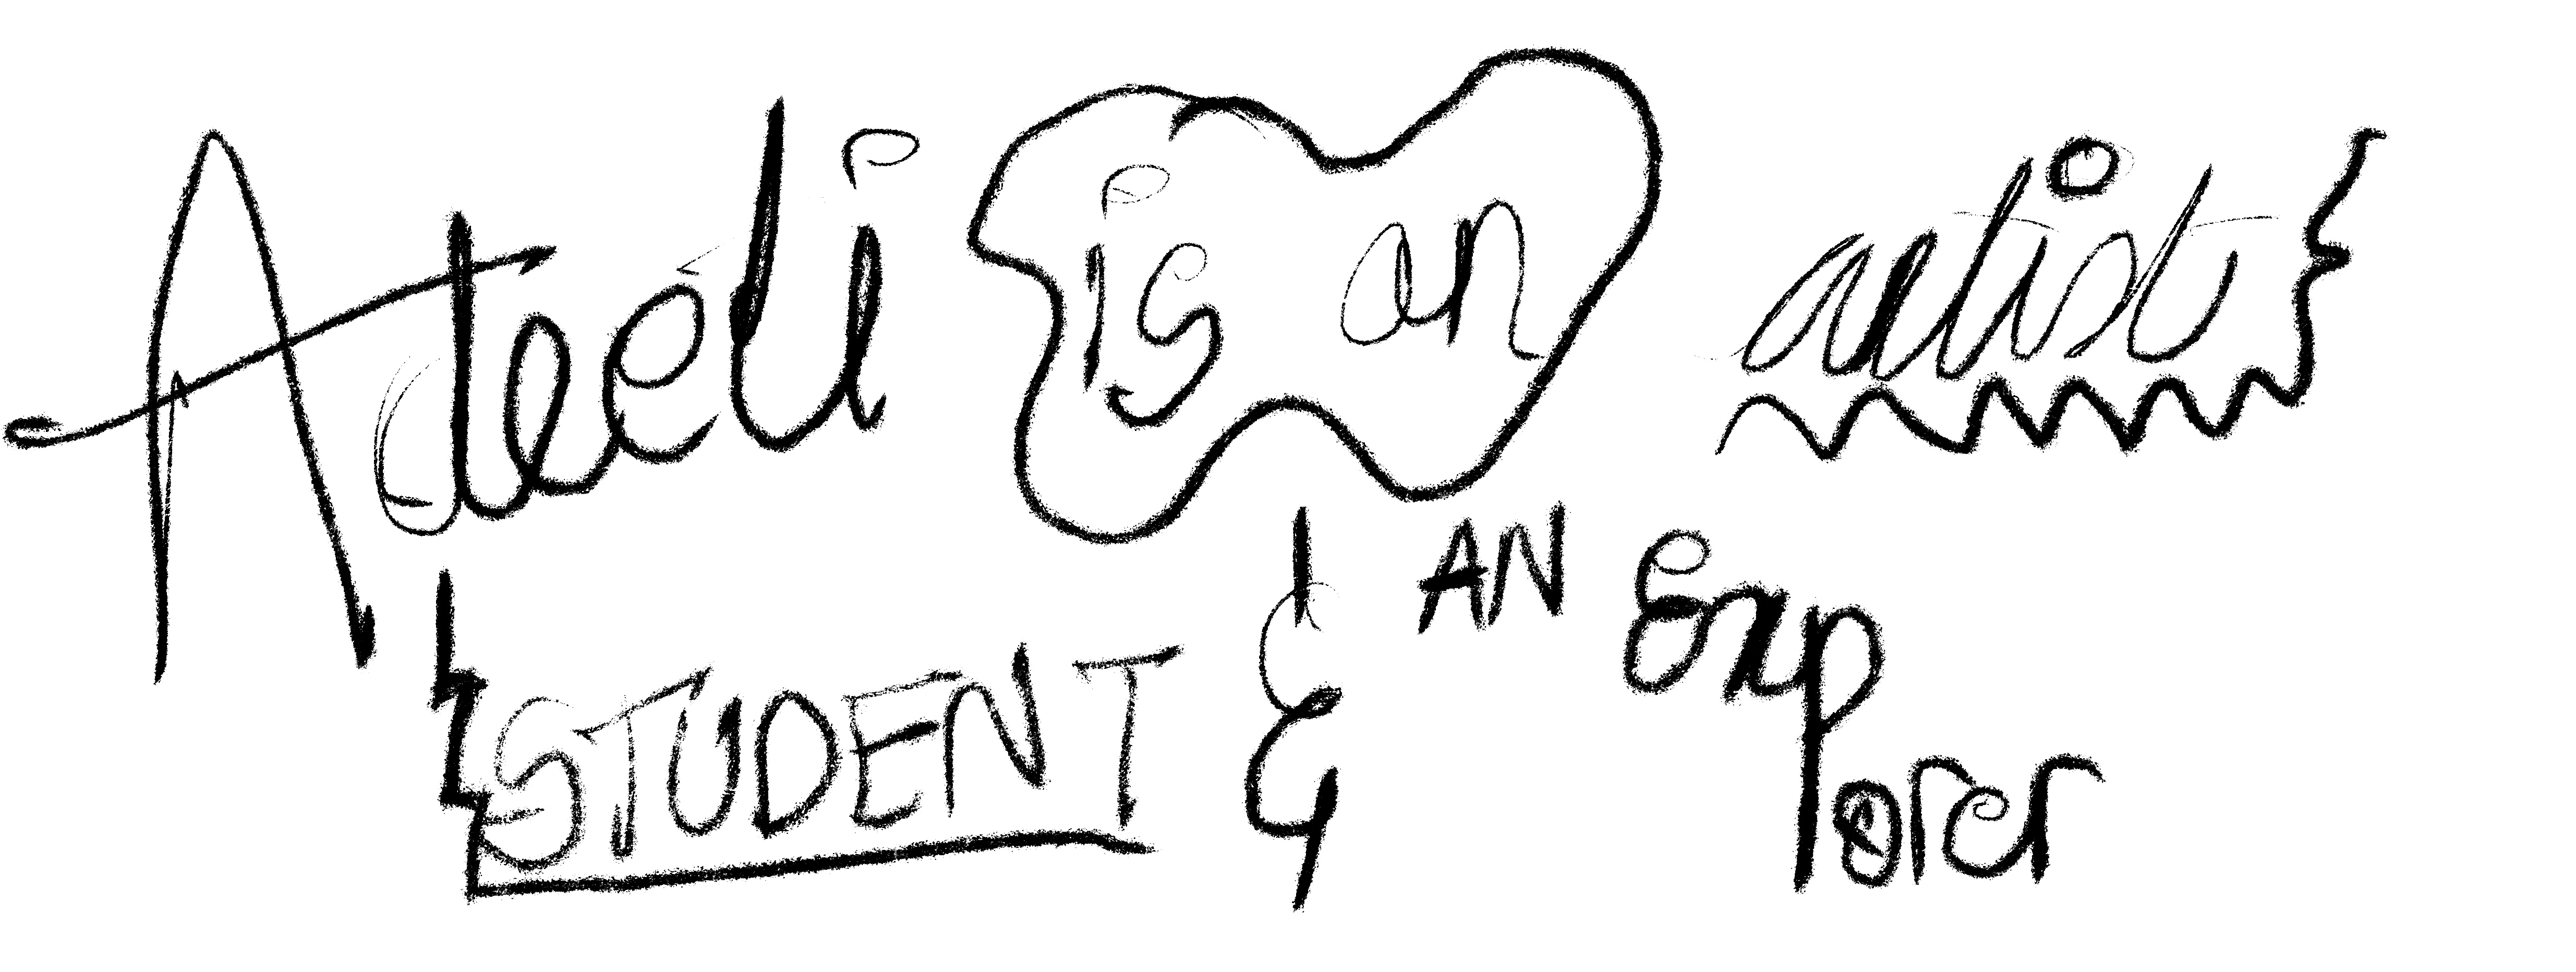 Adeeli is an artist
STUDENT & AN Explorer